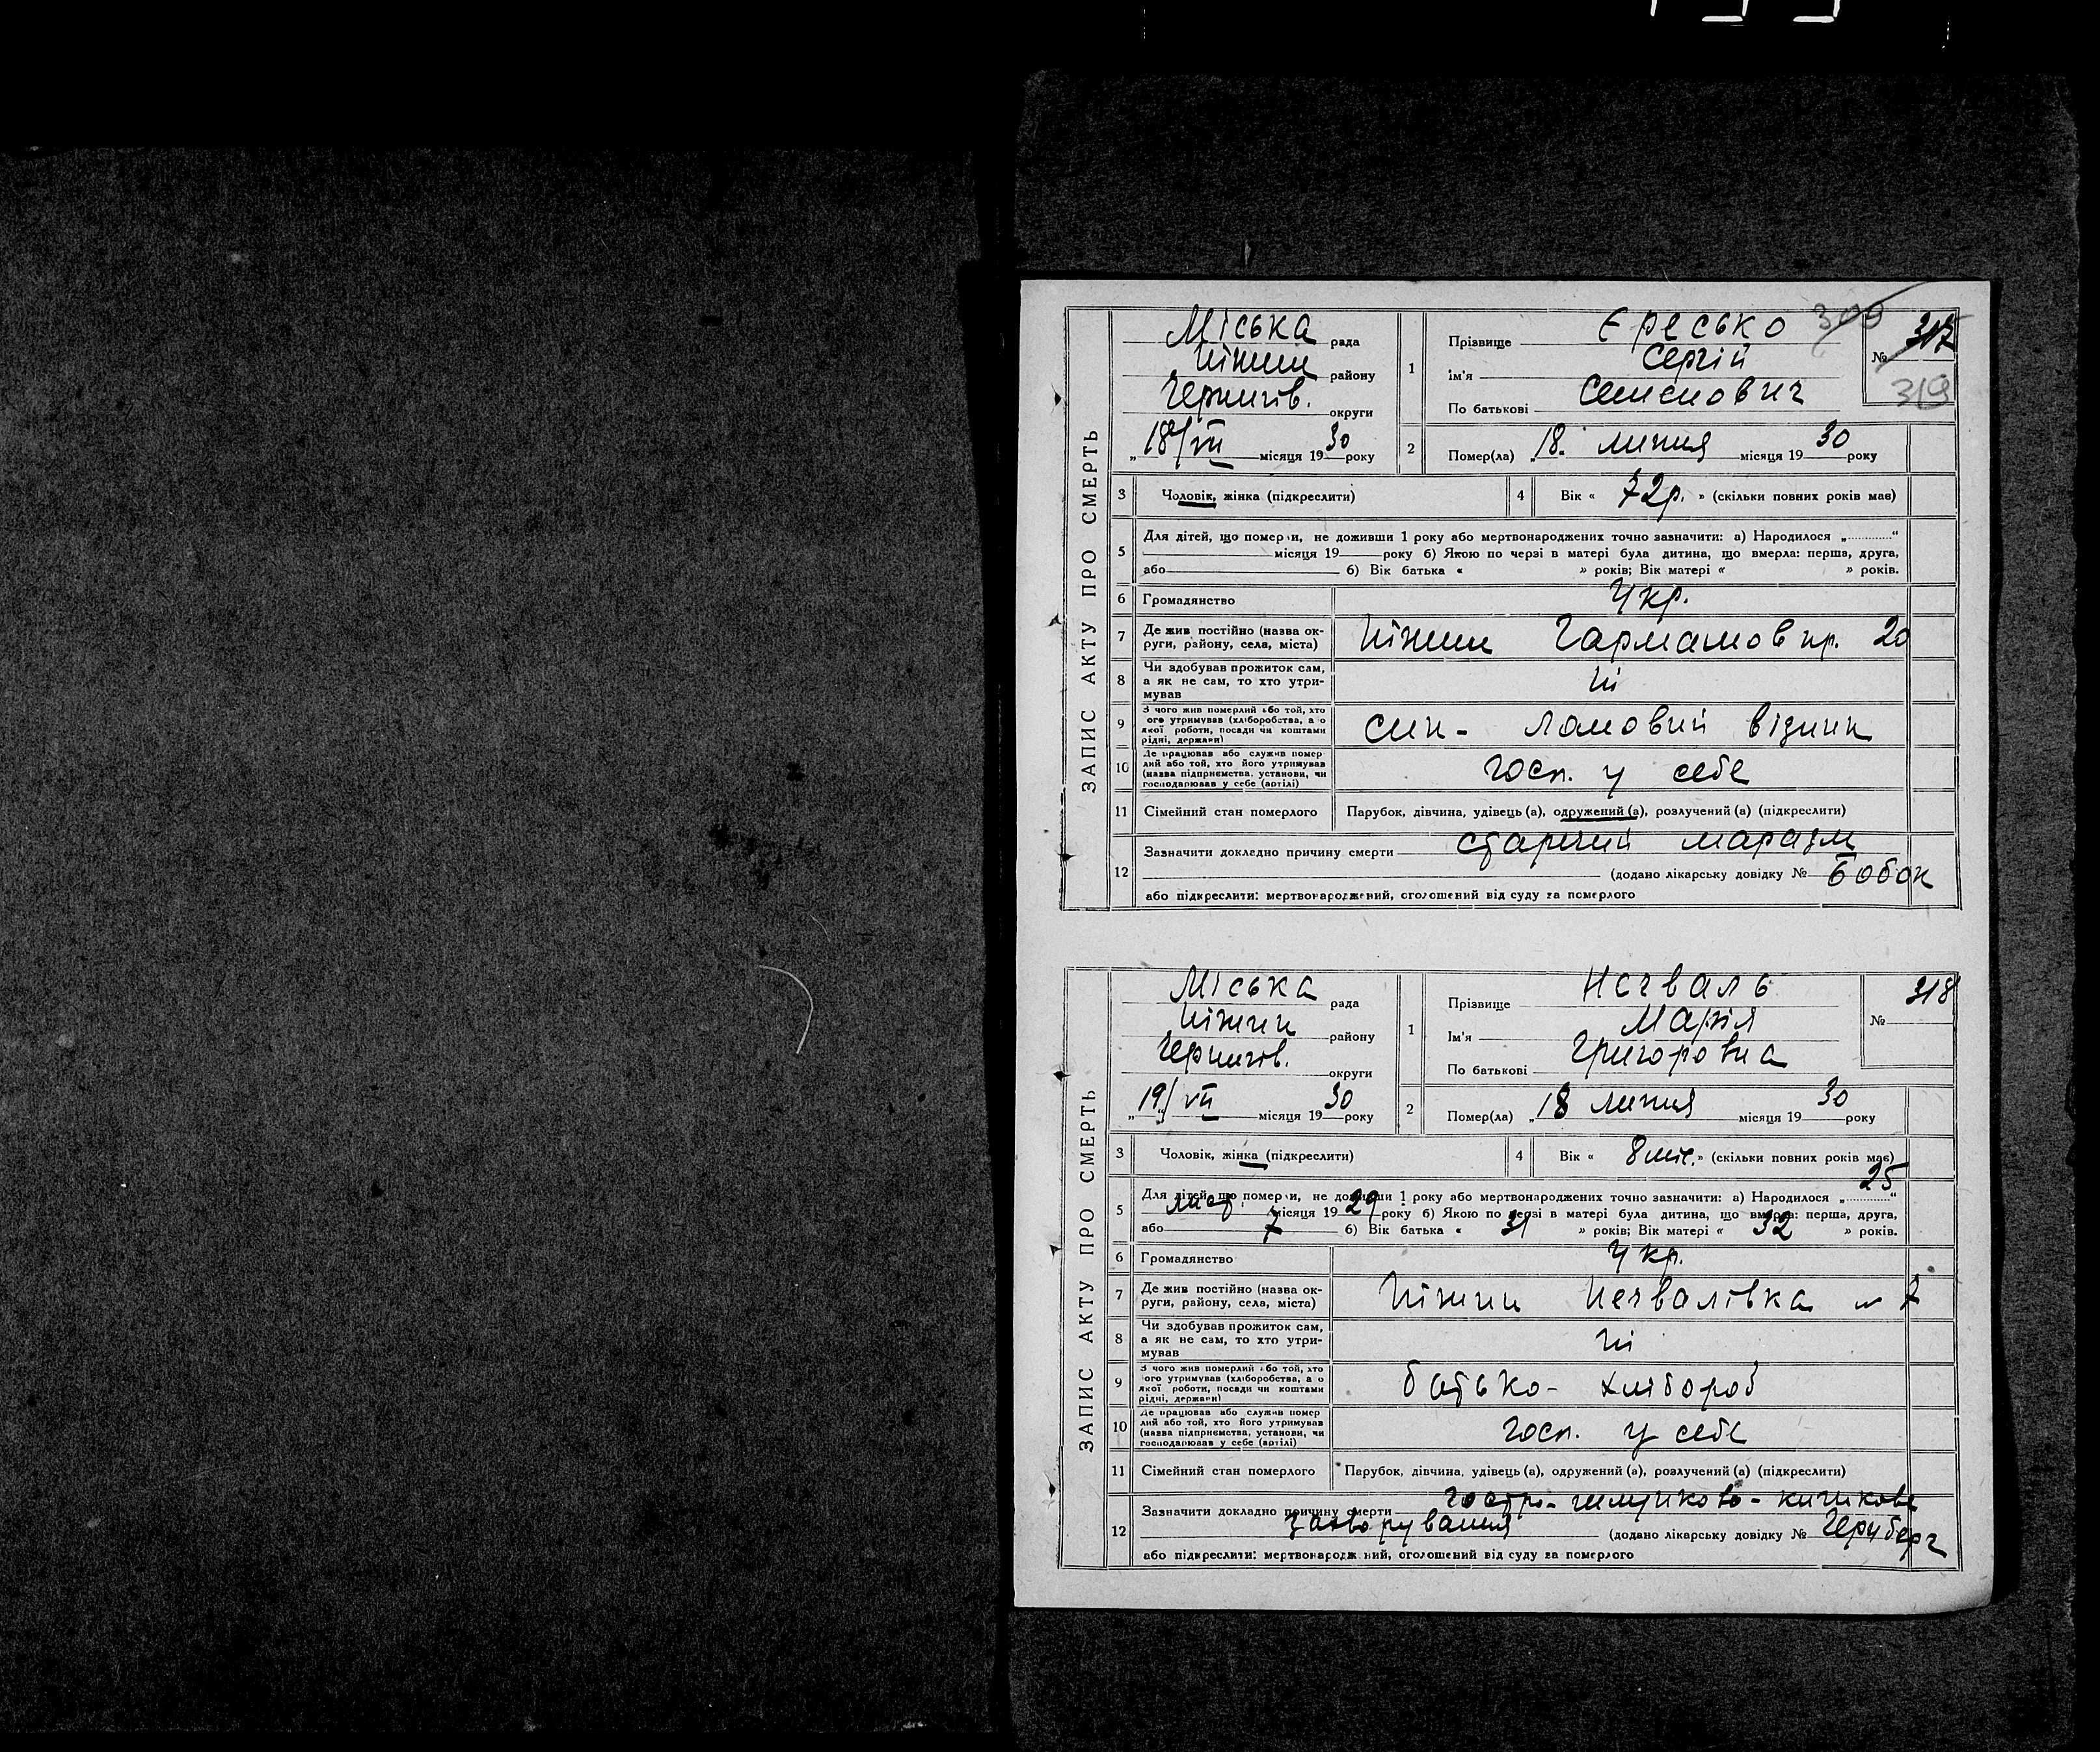 ЗАПИС АКТУ ПРО СМЕРТЬ
Міська рада
Ніжин району
Чернигів. округи
„18/VII місяця 1930 року
1 Прізвище Єресько
Ім'я Сергій
По батькові Семенович
309
№ 317
319
2 Помер(ла) „18. липня місяця 1930 року
3 Чоловік, жінка (підкреслити)
4 Вік « 72 р. » (скільки повних років має)
5 Для дітей, що померли, не доживши 1 року або мертвонароджених точно зазначити: а) Народилося „ “
місяця 19 року б) Якою по черзі в матері була дитина, що вмерла: перша, друга,
або б) Вік батька « » років; Вік матері « » років.
6 Громадянство Укр.
7 Де жив постійно (назва округи, району, села, міста) Ніжин пр. 20
8 Чи здобував прожиток сам, а як не сам, то хто утримував Ні
9 З чого жив померлий або той, хто ого утримував (хліборобства, а о якої роботи, посади чи коштами рідні, держави) син - ламовий візник
10 Де працював або служив помер лий або той, хто його утримував (назва підприємства, установи, чи господарював у себе (артілі) госп. у себе
11 Сімейний стан померлого Парубок, дівчина, удівець (а), одружений (а), розлучений (а) (підкреслити)
12 Зазначити докладно причину смерти старечий маразм
(додано лікарську довідку № Бобок
або підкреслити: мертвонароджений, оголошений від суду за померлого
ЗАПИС АКТУ ПРО СМЕРТЬ
Міська рада
Ніжин району
Чернигів. округи
„19/VII місяця 1930 року
1 Прізвище Нечваль
Ім'я Марія
По батькові Григоровна
№ 318
2 Помер(ла) „18 липня місяця 1930 року
3 Чоловік, жінка (підкреслити)
4 Вік « 8 міс. » (скільки повних років має)
5 Для дітей, що померли, не доживши 1 року або мертвонароджених точно зазначити: а) Народилося „25“
лист. місяця 1929 року б) Якою по черзі в матері була дитина, що вмерла: перша, друга,
або 7 б) Вік батька « 31 » років; Вік матері « 32 » років.
6 Громадянство Укр.
7 Де жив постійно (назва округи, району, села, міста) Ніжин Нечволівка № 7
8 Чи здобував прожиток сам, а як не сам, то хто утримував Ні
9 З чого жив померлий або той, хто ого утримував (хліборобства, а о якої роботи, посади чи коштами рідні, держави) батько - хлібороб
10 Де працював або служив помер лий або той, хто його утримував (назва підприємства, установи, чи господарював у себе (артілі) госп. у себе
11 Сімейний стан померлого Парубок, дівчина, удівець (а), одружений (а), розлучений (а) (підкреслити)
12 Зазначити докладно причину смерти гостро-шлунково-кишкове
захворування (додано лікарську довідку №
або підкреслити: мертвонароджений, оголошений від суду за померлого